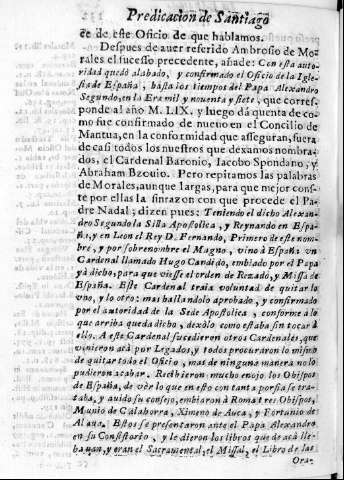 Predicacion de Santiago
ce de este Oficio de que hablamos.
Despues de auer referido Ambrosio de Mo-
rales el sucesso precedente, añade: Con esta auto-
ridad quedó alabado, y confirmado el Oficio de la Igle-
sia de España, hasta los tiempos del Papa Alexandro
Segundo, en la Era mil y nouenta y siete, que corres-
ponde al año M. LIX. y luego dá quenta de co-
mo fue confirmado de nueuo en el Concilio de
Mantua, en la conformidad que asseguran, fuera
de casi todos los nuestros que dexamos nombra-
dos, el Cardenal Baronio, Iacobo Spondano, y
Abraham Bzouio. Pero repitamos las palabras
de Morales, aunque largas, para que mejor cons-
te por ellas la sinrazon con que procede el Pa-
dre Nadal; dizen pues: Teniendo el dicho Alexan-
dro Segundo la Silla Apostolica, y Reynando en Espa-
ña, y en Leon el Rey D. Fernando, Primero de este nom-
bre, y por sobrenombre el Magno, vino à España vn
Cardenal llamado Hugo Candido, embiado por el Papa
yà dicho, para que viesse el orden de Rezado, y Missa de
España. Este Cardenal traia voluntad de quitar lo
vno, y lo otro: mas hallandolo aprobado, y confirmado
por el autoridad de la Sede Apostolica, conforme à lo
que arriba queda dicho, dexòlo como estaba sin tocar à
ello. A este Cardenal sucedieron otros Cardenales, que
vinieron acà por Legados, y todos procuraron lo mismo
de quitar todo el Oficio, mas de ninguna manera no lo
pudieron acabar. Recibieron mucho enojo los Obispos
de España, de vèr lo que en esto con tanta porfia se tra-
taba, y auido su consejo, embiaron à Roma tres Obispos,
Munio de Calahorra, Ximeno de Auca, y Fortunio de
Alaua. Estos se presentaron ante el Papa Alexandro
en su Consistorio, y le dieron los libros que de acà lle-
bauan, y eran el Sacramental, el Missal, el Libro de las
Ora-